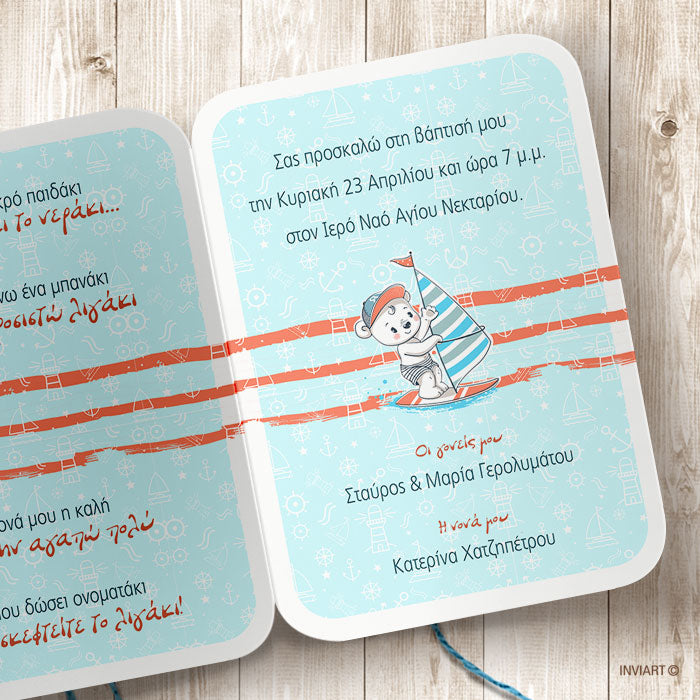 κρό παιδάκι
ι το νεράκι...
νω ένα μπανάκι
οσιστώ λιγάκι
ονά μου η καλή
ην αγαπώ πολύ
μου δώσει ονοματάκι
σκεφτείτε το λιγάκι!
Σας προσκαλώ στη βάπτισή μου
την Κυριακή 23 Απριλίου και ώρα 7 μ.μ.
στον Ιερό Ναό Αγίου Νεκταρίου.
Οι γονείς μου
Σταύρος & Μαρία Γερολυμάτου
Η νονά μου
Κατερίνα Χατζηπέτρου
INVIART ©